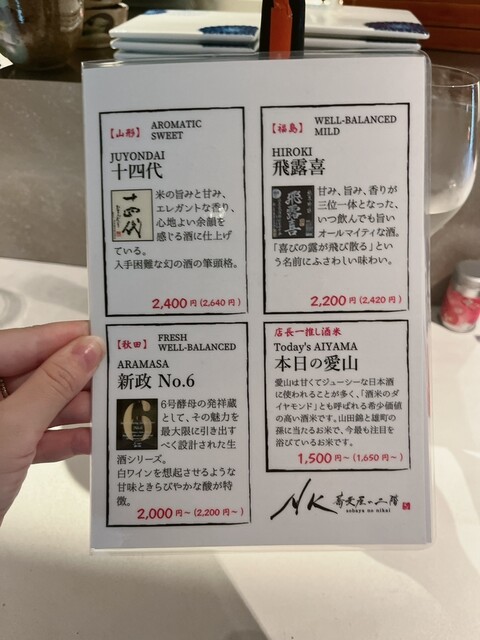 【山形】 AROMATIC
SWEET
JUYONDAI
十四代
十四代
米の旨みと甘み、
エレガントな香り、
心地よい余韻を
感じる酒に仕上げ
ている。
入手困難な幻の酒の筆頭格。
2,400円(2,640円)
【福島】 WELL-BALANCED
MILD
HIROKI
飛露喜
飛露喜
甘み、旨み、香りが
三位一体となった、
いつ飲んでも旨い
オールマイティな酒。
「喜びの露が飛び散る」とい
う名前にふさわしい味わい。
2,200円(2,420円)
【秋田】 FRESH
WELL-BALANCED
ARAMASA
新政 No.6
6
6号酵母の発祥蔵
として、その魅力を
最大限に引き出す
べく設計された生
酒シリーズ。
白ワインを想起させるような
甘味ときらびやかな酸が特
徴。
2,000円~(2,200円~)
店長一推し酒米
Today's AIYAMA
本日の愛山
愛山は甘くてジューシーな日本酒
に使われることが多く、「酒米のダ
イヤモンド」とも呼ばれる希少価値
の高い酒米です。山田錦と雄町の
孫に当たるお米で、今最も注目を
浴びているお米です。
1,500円~(1,650円~)
NK 蕎麦屋の二階
sobaya no nikai